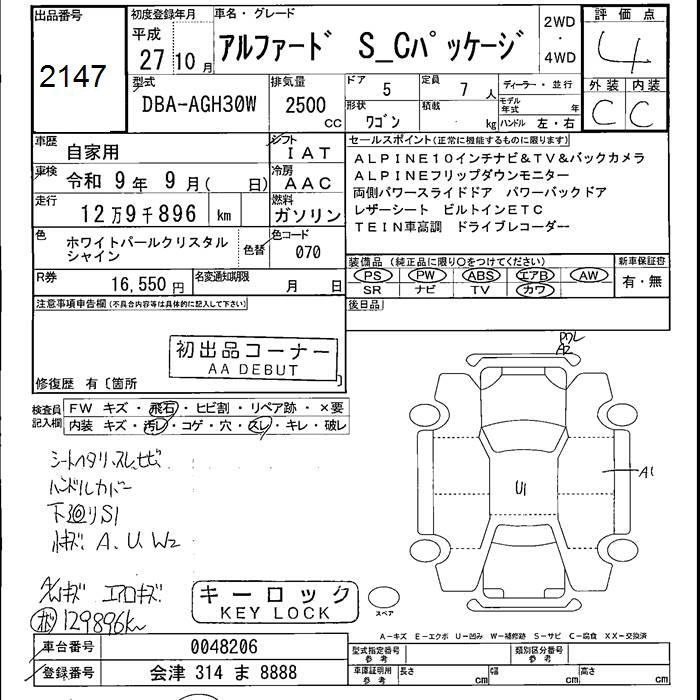 出品番号
2147
初度登録年月
平成
27 10 月
車名・グレード
アルファード S_Cパッケージ
2WD
・
4WD
評価点
4
外装 内装
C C
型式
DBA-AGH30W
排気量
2500
CC
ドア
5
定員
7 人
形状
ワゴン
積載
kg
ディーラー・並行
モデル年式 年
ハンドル 左・右
車歴
自家用
シフト
IAT
車検
令和 9年 9月( 日)
冷房
AAC
走行
12万9千896 km
燃料
ガソリン
色
ホワイトパールクリスタル
シャイン
色替
色コード
070
R券
16,550 円
名変通知期限
月 日
セールスポイント(正常に機能するものに限ります)
ALPINE10インチナビ&TV&バックカメラ
ALPINEフリップダウンモニター
両側パワースライドドア パワーバックドア
レザーシート ビルトインETC
TEIN車高調 ドライブレコーダー
装備品(純正品に限り○をつけてください)
PS PW ABS エアB AW
SR ナビ TV カワ
新車保証書
有・無
後日品
注意事項申告欄(不具合内容等は具体的に記入して下さい)
初出品コーナー
AA DEBUT
修復歴 有〔箇所 〕
検査員
記入欄
FW キズ・飛石・ヒビ割・リペア跡・×要
内装 キズ・汚レ・コゲ・穴・スレ・キレ・破レ
シートヘタリ、スレ、セビ
ハンドルカバー
下廻りS1
小キズ A、U、W2
エアロキズ
129896km
キーロック
KEY LOCK
A2
A1
U1
スペア
A-キズ E-エクボ U-凹み W-補修跡 S-サビ C-腐食 XX-交換済
車台番号
0048206
登録番号
会津 314 ま 8888
型式指定番号
参考
類別区分番号
参考
車庫証明用
参考
長さ cm
幅 cm
高さ cm